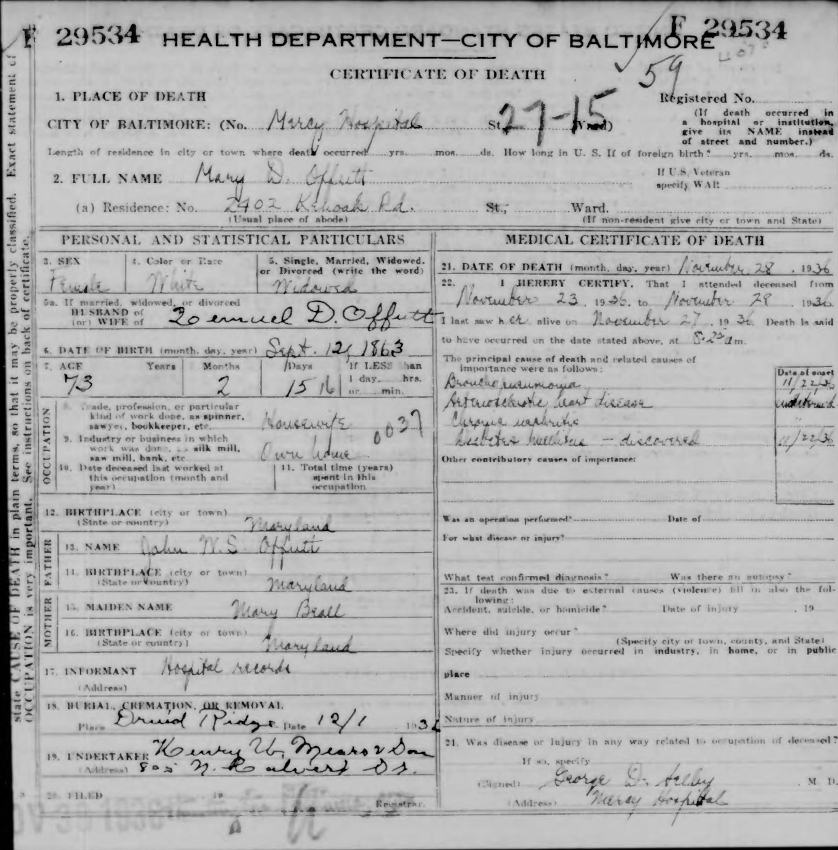 F 29534 HEALTH DEPARTMENT—CITY OF BALTIMORE F 29534
CERTIFICATE OF DEATH 59
1. PLACE OF DEATH
Registered No.
CITY OF BALTIMORE: (No. Mercy Hospital St., 27-15 Ward)
(If death occurred in a hospital or institution, give its NAME instead of street and number.)
Length of residence in city or town where death occurred yrs. mos. ds. How long in U. S. If of foreign birth? yrs. mos. ds.
2. FULL NAME Mary D. Offutt
If U.S. Veteran specify WAR
(a) Residence: No. 2402 Rd. St., Ward.
(Usual place of abode) (If non-resident give city or town and State)
PERSONAL AND STATISTICAL PARTICULARS
3. SEX 4. Color or Race 5. Single, Married, Widowed, or Divorced (write the word)
Female White Widowed
5a. If married, widowed, or divorced
HUSBAND of
(or) WIFE of Lemuel D. Offutt
6. DATE OF BIRTH (month, day, year) Sept. 12, 1863
7. AGE Years Months Days If LESS than
1 day, hrs.
or min.
73 2 15 16
OCCUPATION
8. Trade, profession, or particular
kind of work done, as spinner,
sawyer, bookkeeper, etc. Housewife
0037
9. Industry or business in which
work was done, as silk mill,
saw mill, bank, etc. Own home
10. Date deceased last worked at
this occupation (month and
year)
11. Total time (years)
spent in this
occupation
12. BIRTHPLACE (city or town)
(State or country) Maryland
FATHER
13. NAME John W.S. Offutt
14. BIRTHPLACE (city or town)
(State or country) Maryland
MOTHER
15. MAIDEN NAME Mary Beall
16. BIRTHPLACE (city or town)
(State or country) Maryland
17. INFORMANT Hospital records
(Address)
18. BURIAL, CREMATION, OR REMOVAL
Place Druid Ridge Date 12/1 1936
19. UNDERTAKER Henry W. Mears & Son
(Address) 805 N. Calvert St.
20. FILED 19
Registrar.
MEDICAL CERTIFICATE OF DEATH
21. DATE OF DEATH (month, day, year) November 28, 1936
22. I HEREBY CERTIFY, That I attended deceased from
November 23, 1936, to November 28, 1936
I last saw her alive on November 27, 1936 Death is said
to have occurred on the date stated above, at m.
The principal cause of death and related causes of
importance were as follows:
Date of onset
Bronchopneumonia 11/22/36
Arteriosclerotic heart disease undetermined
Chronic nephritis "
Diabetes Mellitus — discovered 11/22/36
Other contributory causes of importance:
Was an operation performed? Date of
For what disease or injury?
What test confirmed diagnosis? Was there an autopsy?
23. If death was due to external causes (violence) fill in also the following:
Accident, suicide, or homicide? Date of injury , 19
Where did injury occur?
(Specify city or town, county, and State)
Specify whether injury occurred in industry, in home, or in public
place
Manner of injury
Nature of injury
24. Was disease or injury in any way related to occupation of deceased?
If so, specify
(Signed) George D. M. D.
(Address) Mercy Hospital
state CAUSE OF DEATH in plain terms, so that it may be properly classified. Exact statement of
OCCUPATION is very important. See instructions on back of certificate.